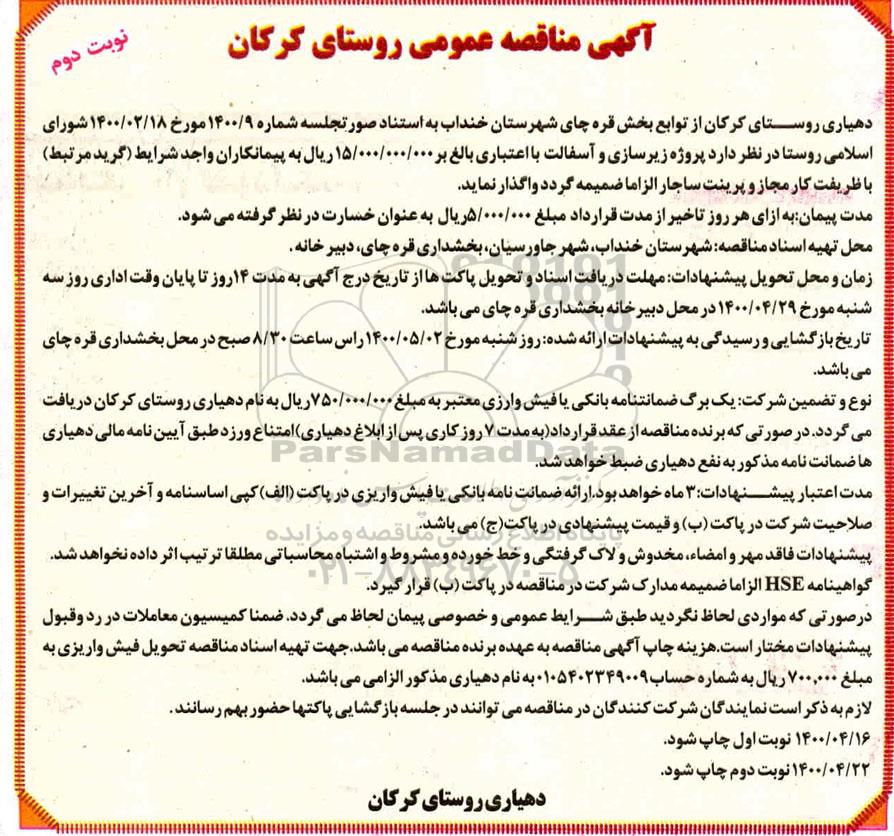 آگهی مناقصه عمومی روستای کرکان
نوبت دوم
دهیاری روستای کرکان از توابع بخش قره چای شهرستان خنداب به استناد صورتجلسه شماره ۱۴۰۰/۹ مورخ ۱۴۰۰/۰۲/۱۸ شورای
اسلامی روستا در نظر دارد پروژه زیرسازی و آسفالت با اعتباری بالغ بر ۱۵/۰۰۰/۰۰۰/۰۰۰ ریال به پیمانکاران واجد شرایط (گرید مرتبط)
با ظریفت کار مجاز و پرینت ساجار الزاما ضمیمه گردد واگذار نماید.
مدت پیمان: به ازای هر روز تاخیر از مدت قرارداد مبلغ ۵/۰۰۰/۰۰۰ ریال به عنوان خسارت در نظر گرفته می شود.
محل تهیه اسناد مناقصه: شهرستان خنداب، شهر جاورسیان، بخشداری قره چای، دبیر خانه.
زمان و محل تحویل پیشنهادات: مهلت دریافت اسناد و تحویل پاکت ها از تاریخ درج آگهی به مدت ۱۴ روز تا پایان وقت اداری روز سه
شنبه مورخ ۱۴۰۰/۰۴/۲۹ در محل دبیرخانه بخشداری قره چای می باشد.
تاریخ بازگشایی و رسیدگی به پیشنهادات ارائه شده: روز شنبه مورخ ۱۴۰۰/۰۵/۰۲ راس ساعت ۸/۳۰ صبح در محل بخشداری قره چای
می باشد.
نوع و تضمین شرکت: یک برگ ضمانتنامه بانکی یا فیش وارزی معتبر به مبلغ ۷۵۰/۰۰۰/۰۰۰ ریال به نام دهیاری روستای کرکان دریافت
می گردد. در صورتی که برنده مناقصه از عقد قرارداد (به مدت ۷ روز کاری پس از ابلاغ دهیاری) امتناع ورزد طبق آیین نامه مالی دهیاری
ها ضمانت نامه مذکور به نفع دهیاری ضبط خواهد شد.
مدت اعتبار پیشنهادات: ۳ ماه خواهد بود. ارائه ضمانت نامه بانکی یا فیش واریزی در پاکت (الف) کپی اساسنامه و آخرین تغییرات و
صلاحیت شرکت در پاکت (ب) و قیمت پیشنهادی در پاکت (ج) می باشد.
پیشنهادات فاقد مهر و امضاء، مخدوش و لاک گرفتگی و خط خورده و مشروط و اشتباه محاسباتی مطلقا ترتیب اثر داده نخواهد شد.
گواهینامه HSE الزاما ضمیمه مدارک شرکت در مناقصه در پاکت (ب) قرار گیرد.
درصورتی که مواردی لحاظ نگردید طبق شرایط عمومی و خصوصی پیمان لحاظ می گردد. ضمنا کمیسیون معاملات در رد وقبول
پیشنهادات مختار است. هزینه چاپ آگهی مناقصه به عهده برنده مناقصه می باشد. جهت تهیه اسناد مناقصه تحویل فیش واریزی به
مبلغ ۷۰۰,۰۰۰ ریال به شماره حساب ۰۱۰۵۴۰۲۳۴۹۰۰۹ به نام دهیاری مذکور الزامی می باشد.
لازم به ذکر است نمایندگان شرکت کنندگان در مناقصه می توانند در جلسه بازگشایی پاکتها حضور بهم رسانند.
۱۴۰۰/۰۴/۱۶ نوبت اول چاپ شود.
۱۴۰۰/۰۴/۲۲ نوبت دوم چاپ شود.
دهیاری روستای کرکان
ParsNamadData
پایگاه اطلاع رسانی مناقصه و مزایده
۰۲۱-۸۸۳۴۹۶۷۰-۵